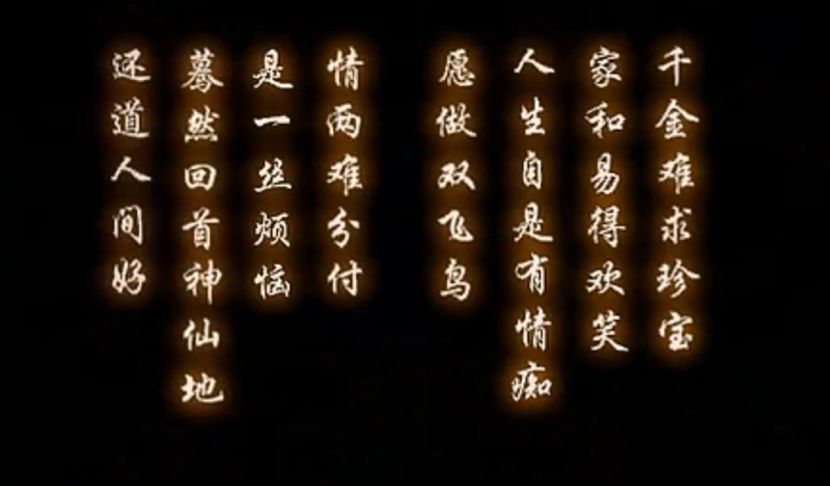 千金难求珍宝
家和易得欢笑
人生自是有情痴
愿做双飞鸟
情两难分付
是一丝烦恼
蓦然回首神仙地
还道人间好